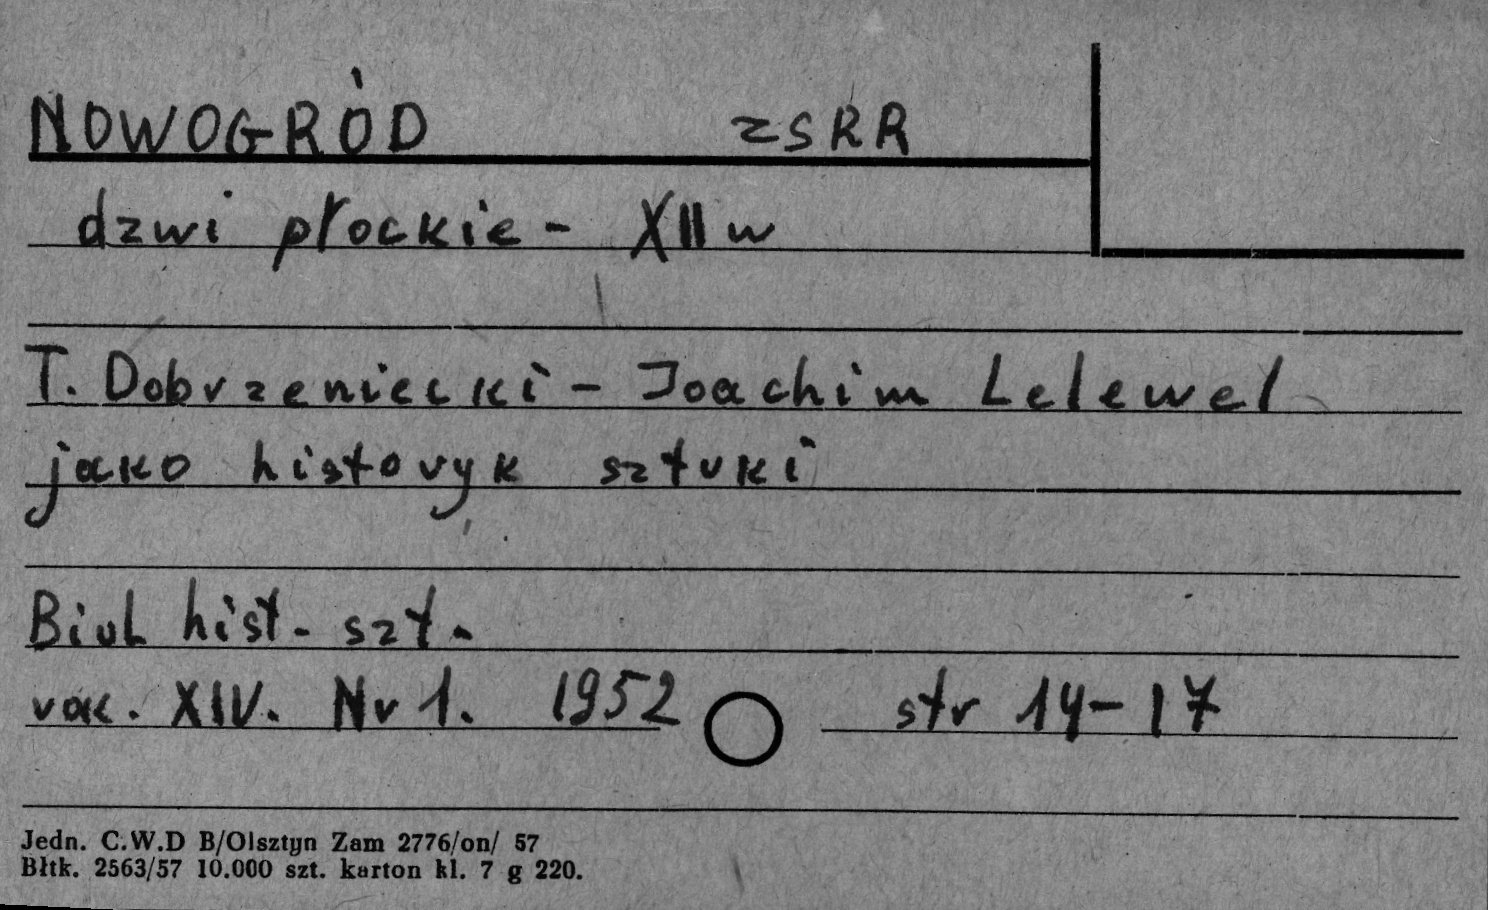 NOWOGRÓD ZSRR
dzwi płockie - XII w
T. Dobrzeniecki - Joachim Lelewel
jako historyk sztuki
Biul. hist. szt.
rok. XIV. Nr 1. 1952 str 14-17
Jedn. C.W.D B/Olsztyn Zam 2776/on/ 57
Błtk. 2563/57 10.000 szt. karton kl. 7 g 220.